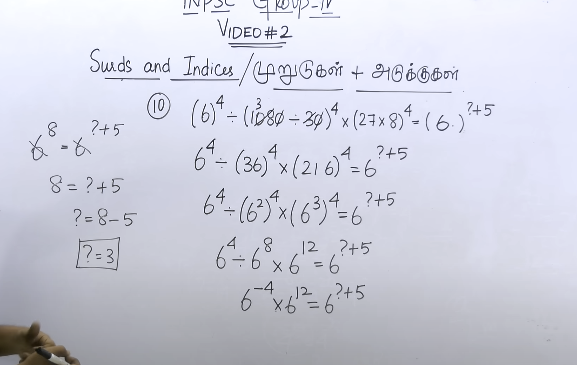 TNPSC Group-IV
VIDEO #2
Surds and Indices / முறுடுகள் + அடுக்குகள்
⑩ (6)⁴ ÷ (1080 ÷ 30)⁴ × (27×8)⁴ = (6.)^?+5
6⁴ ÷ (36)⁴ × (216)⁴ = 6^?+5
6⁴ ÷ (6²)⁴ × (6³)⁴ = 6^?+5
6⁴ ÷ 6⁸ × 6¹² = 6^?+5
6⁻⁴ × 6¹² = 6^?+5
6⁸ = 6^?+5
8 = ?+5
? = 8-5
? = 3